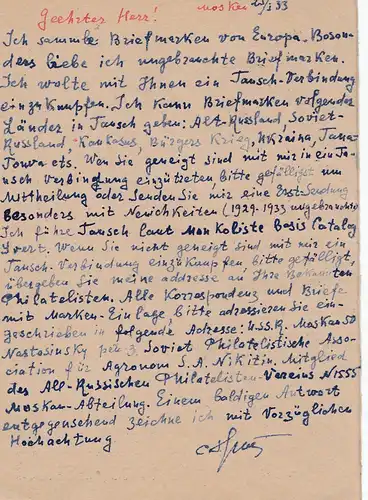 Geehrter Herr! Moskau 25/I 33
Ich sammle Briefmarken von Europa. Beson-
ders liebe ich ungebrauchte Briefmarken.
Ich wolte mit Ihnen ein Tausch-Verbindung
einzuknüpfen. Ich kann Briefmarken volgender
Länder in Tausch geben: Alt-Russland, Soviet-
Russland, Kaukasus, Bürgers Krieg, Ukraina, Tana
Touwa ets. Wen Sie geneigt sind mit mir in ein Ta-
usch Verbindung einzutreten, bitte gefälligst um
Mittheilung oder Senden Sie mir eine Erst-Sendung
Besonders mit Neuichkeiten (1929-1933 ungebrauchte)
Ich führe Tausch laut Mankoliste Basis Catalog
Yvert. Wenn Sie nicht geneigt sind mit mir ein
Tausch-Verbindung einzuknüpfen bitte gefälligst,
übergeben Sie meine addresse an Ihre Bekannten
Philatelisten. Alle Korrospondenz und Briefe
mit Marken-Einlage bitte adressieren Sie ein-
geschrieben in folgende Adresse: U.S.S.R. Moskau 50
Nastasinsky per 3. Soviet Philatelistische Asso-
ciation für Agronom S.A. Nikitin. Mitglied
des All-Russischen Philatelisten-Vereins N1555
Moskau-Abteilung. Einem baldigen Antwort
entgegensehend zeichne ich mit Vorzüglichen
Hochachtung